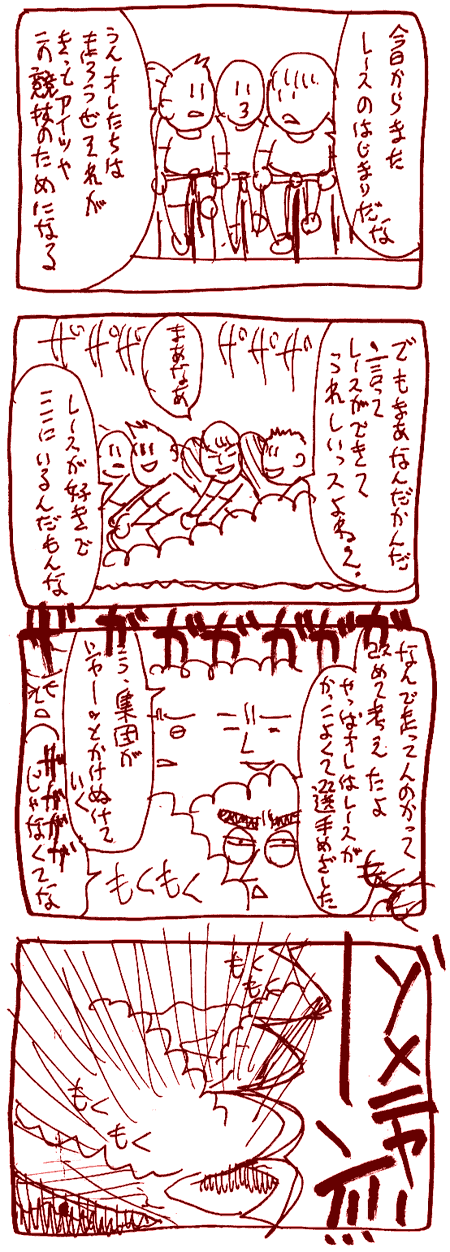 今日からまた
レースのはじまりだな
うんオレたちは
走ろうぜそれが
きっとアイツや
この競技のためになる
でもまあなんだかんだ
言って
レースができて
うれしいっスよねえ.
まあなあ
ザザザ
ザザザ
レースが好きで
ここにいるんだもんな
ザガガガガガガ
なんで走ってんのかって
改めて考えたよ
やっぱオレはレースが
かっこよくて選手めざした
こう、集団が
シャーッとかけぬけて
いく
ガガガガ
じゃなくてな
もくもく
もく
もく
もく
もく
もく